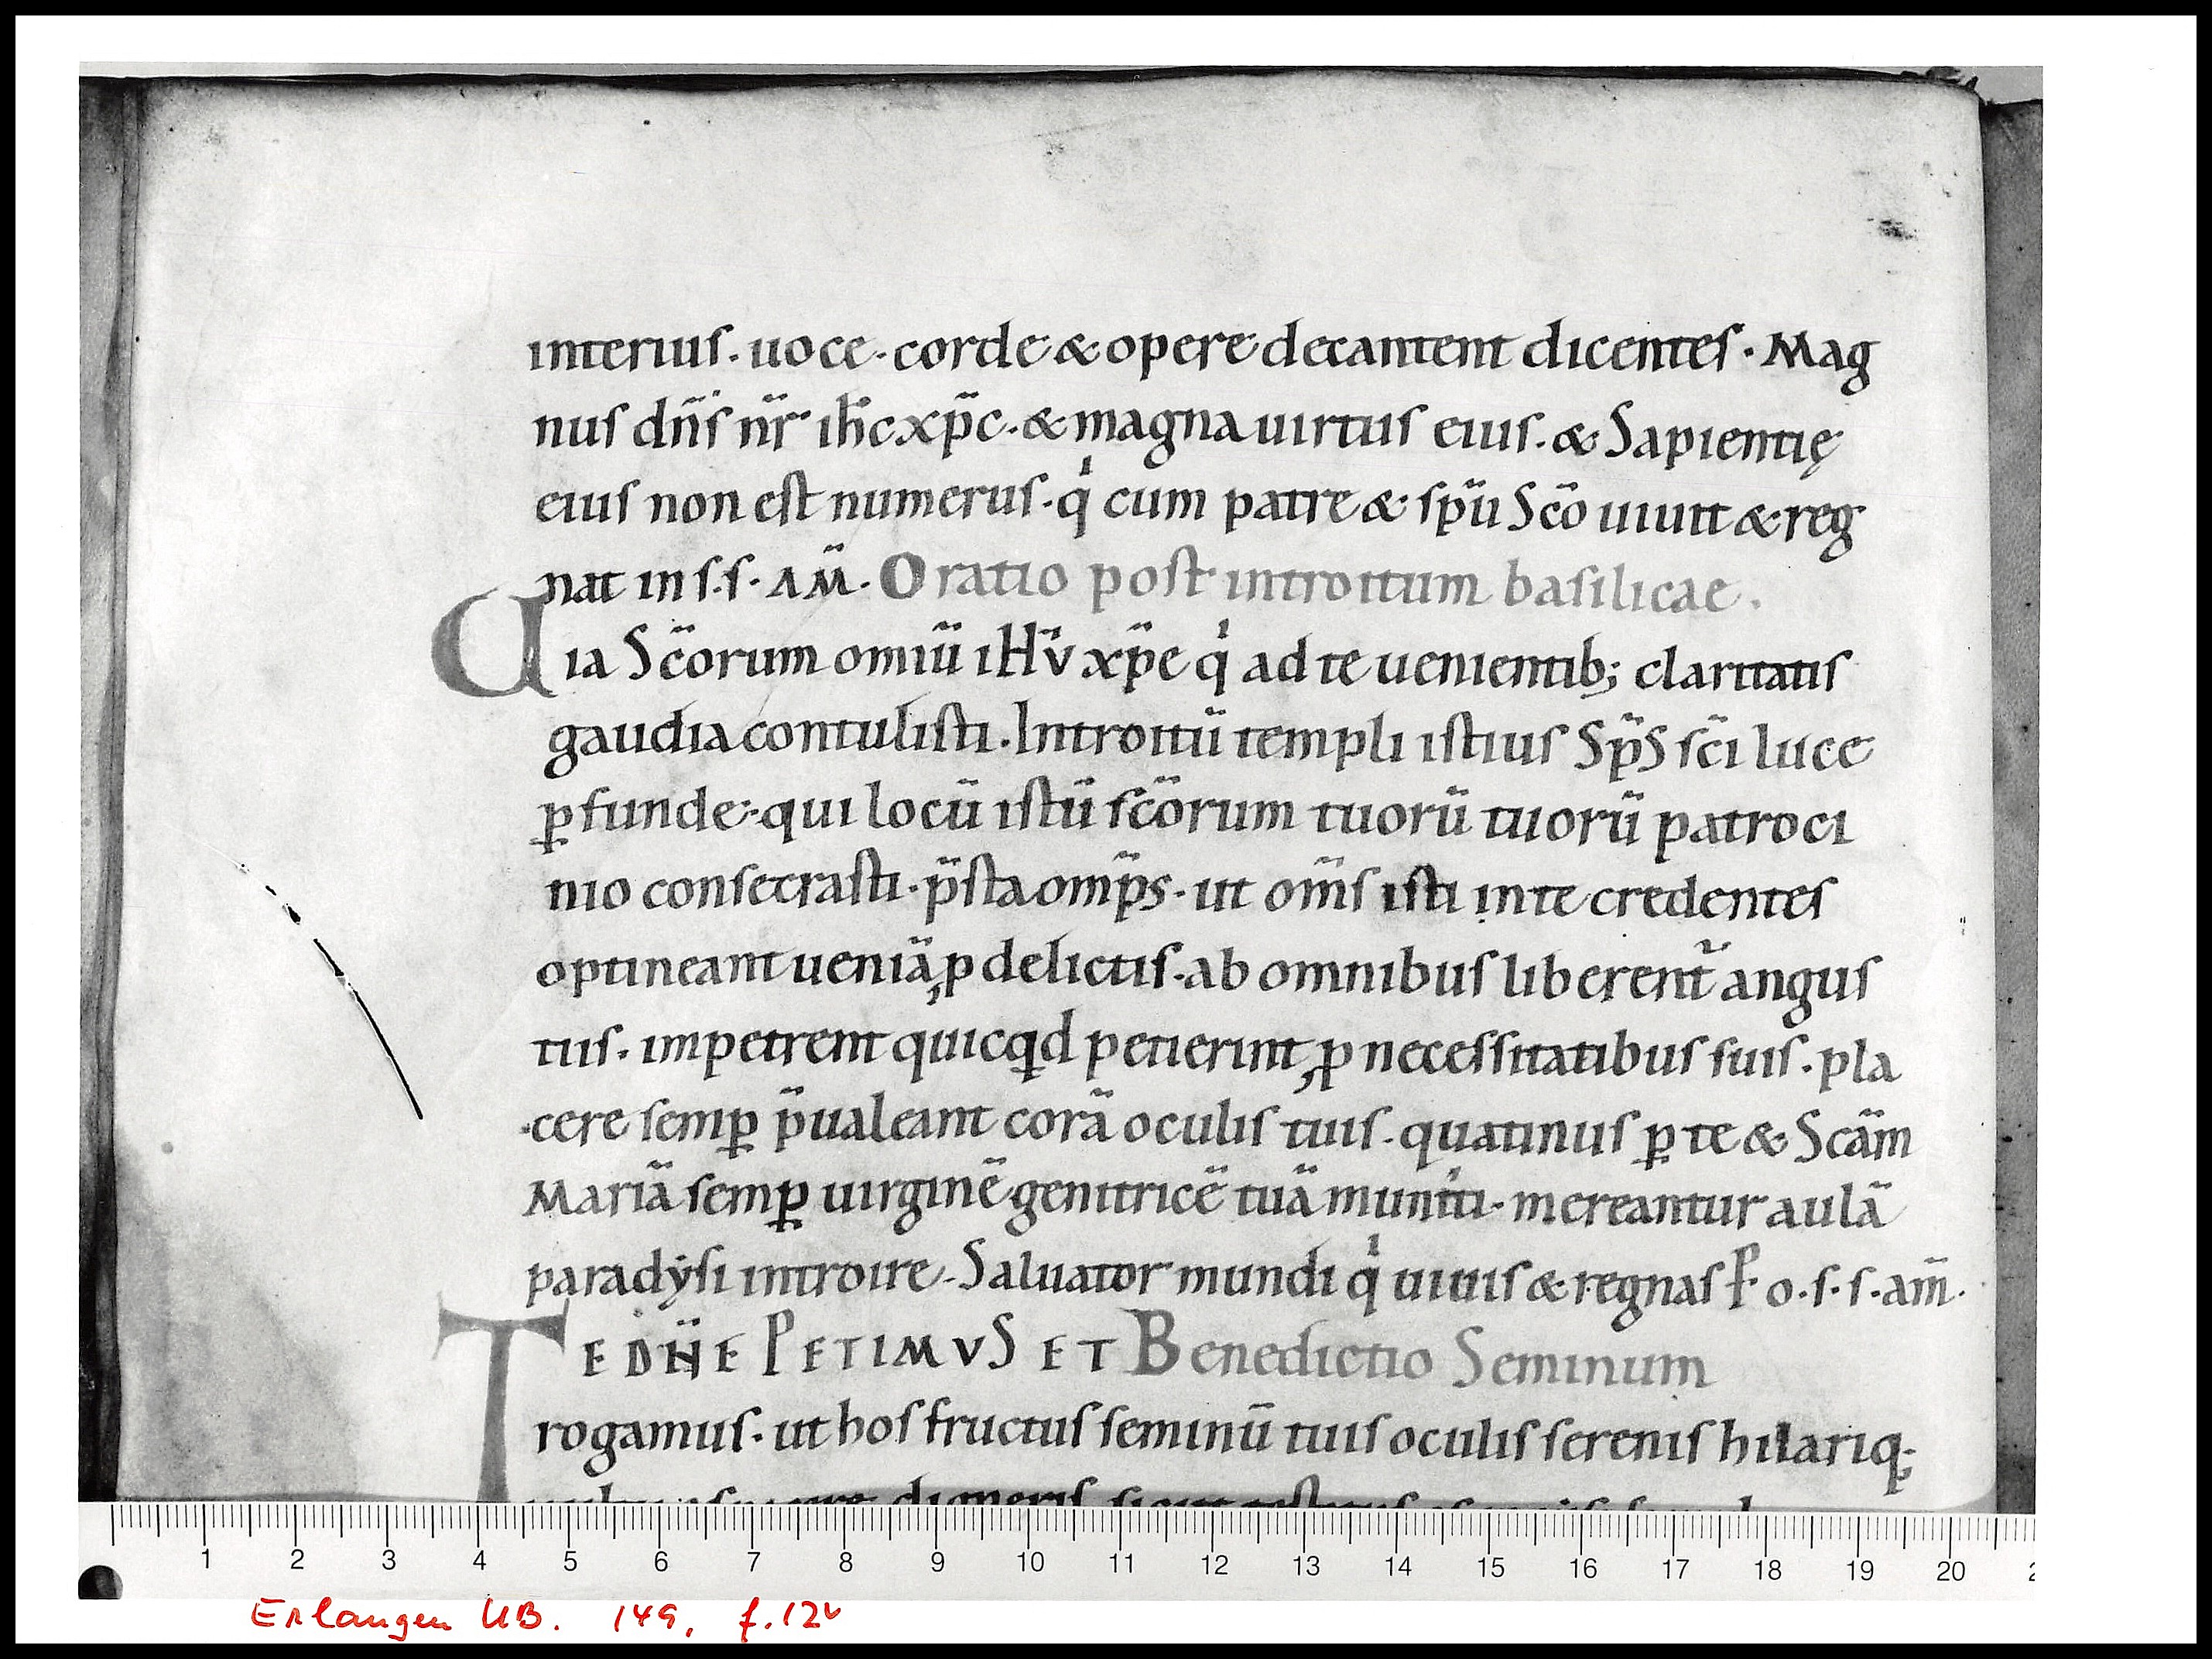 interius. uoce. corde & opere decantent dicentes. Mag
nus dn̄s nr̄ ih̄c xp̄c. & magna uirtus eius. & Sapientię
eius non est numerus. qͥ cum patre & sp̄u Sc̄o uiuit & reg
nat in s. s. AM̄. Oratio post introitum basilicae.
Uia Sc̄orum omiū iHv̄ xp̄e qͥ ad te uenientib; claritatis
gaudia contulisti. Introitū templi istius Sp̄S sc̄i luce
ꝑfunde. qui locū istū sc̄orum tuorū tuorū patroci
nio consecrasti. p̄sta omp̄s. ut om̄s isti in te credentes
optineant ueniā, p delictis. ab omnibus liberent̄ angus
tiis. impetrent quicqd petierint, p necessitatibus suis. pla
cere semꝑ p̄ualeant corā oculis tuis. quatinus ꝑ te & Scām
Mariā semꝑ uirginē genitricē tuā muniti. mereantur aulā
paradẏsi introire. Saluator mundi qͥ uiuis & regnas P. o. s. s. am̄.
TE DN̄E PETIMVS ET Benedictio Seminum
rogamus. ut hos fructus seminū tuis oculis serenis hilariq;
1 2 3 4 5 6 7 8 9 10 11 12 13 14 15 16 17 18 19 20
Erlangen UB. 149, f. 12v